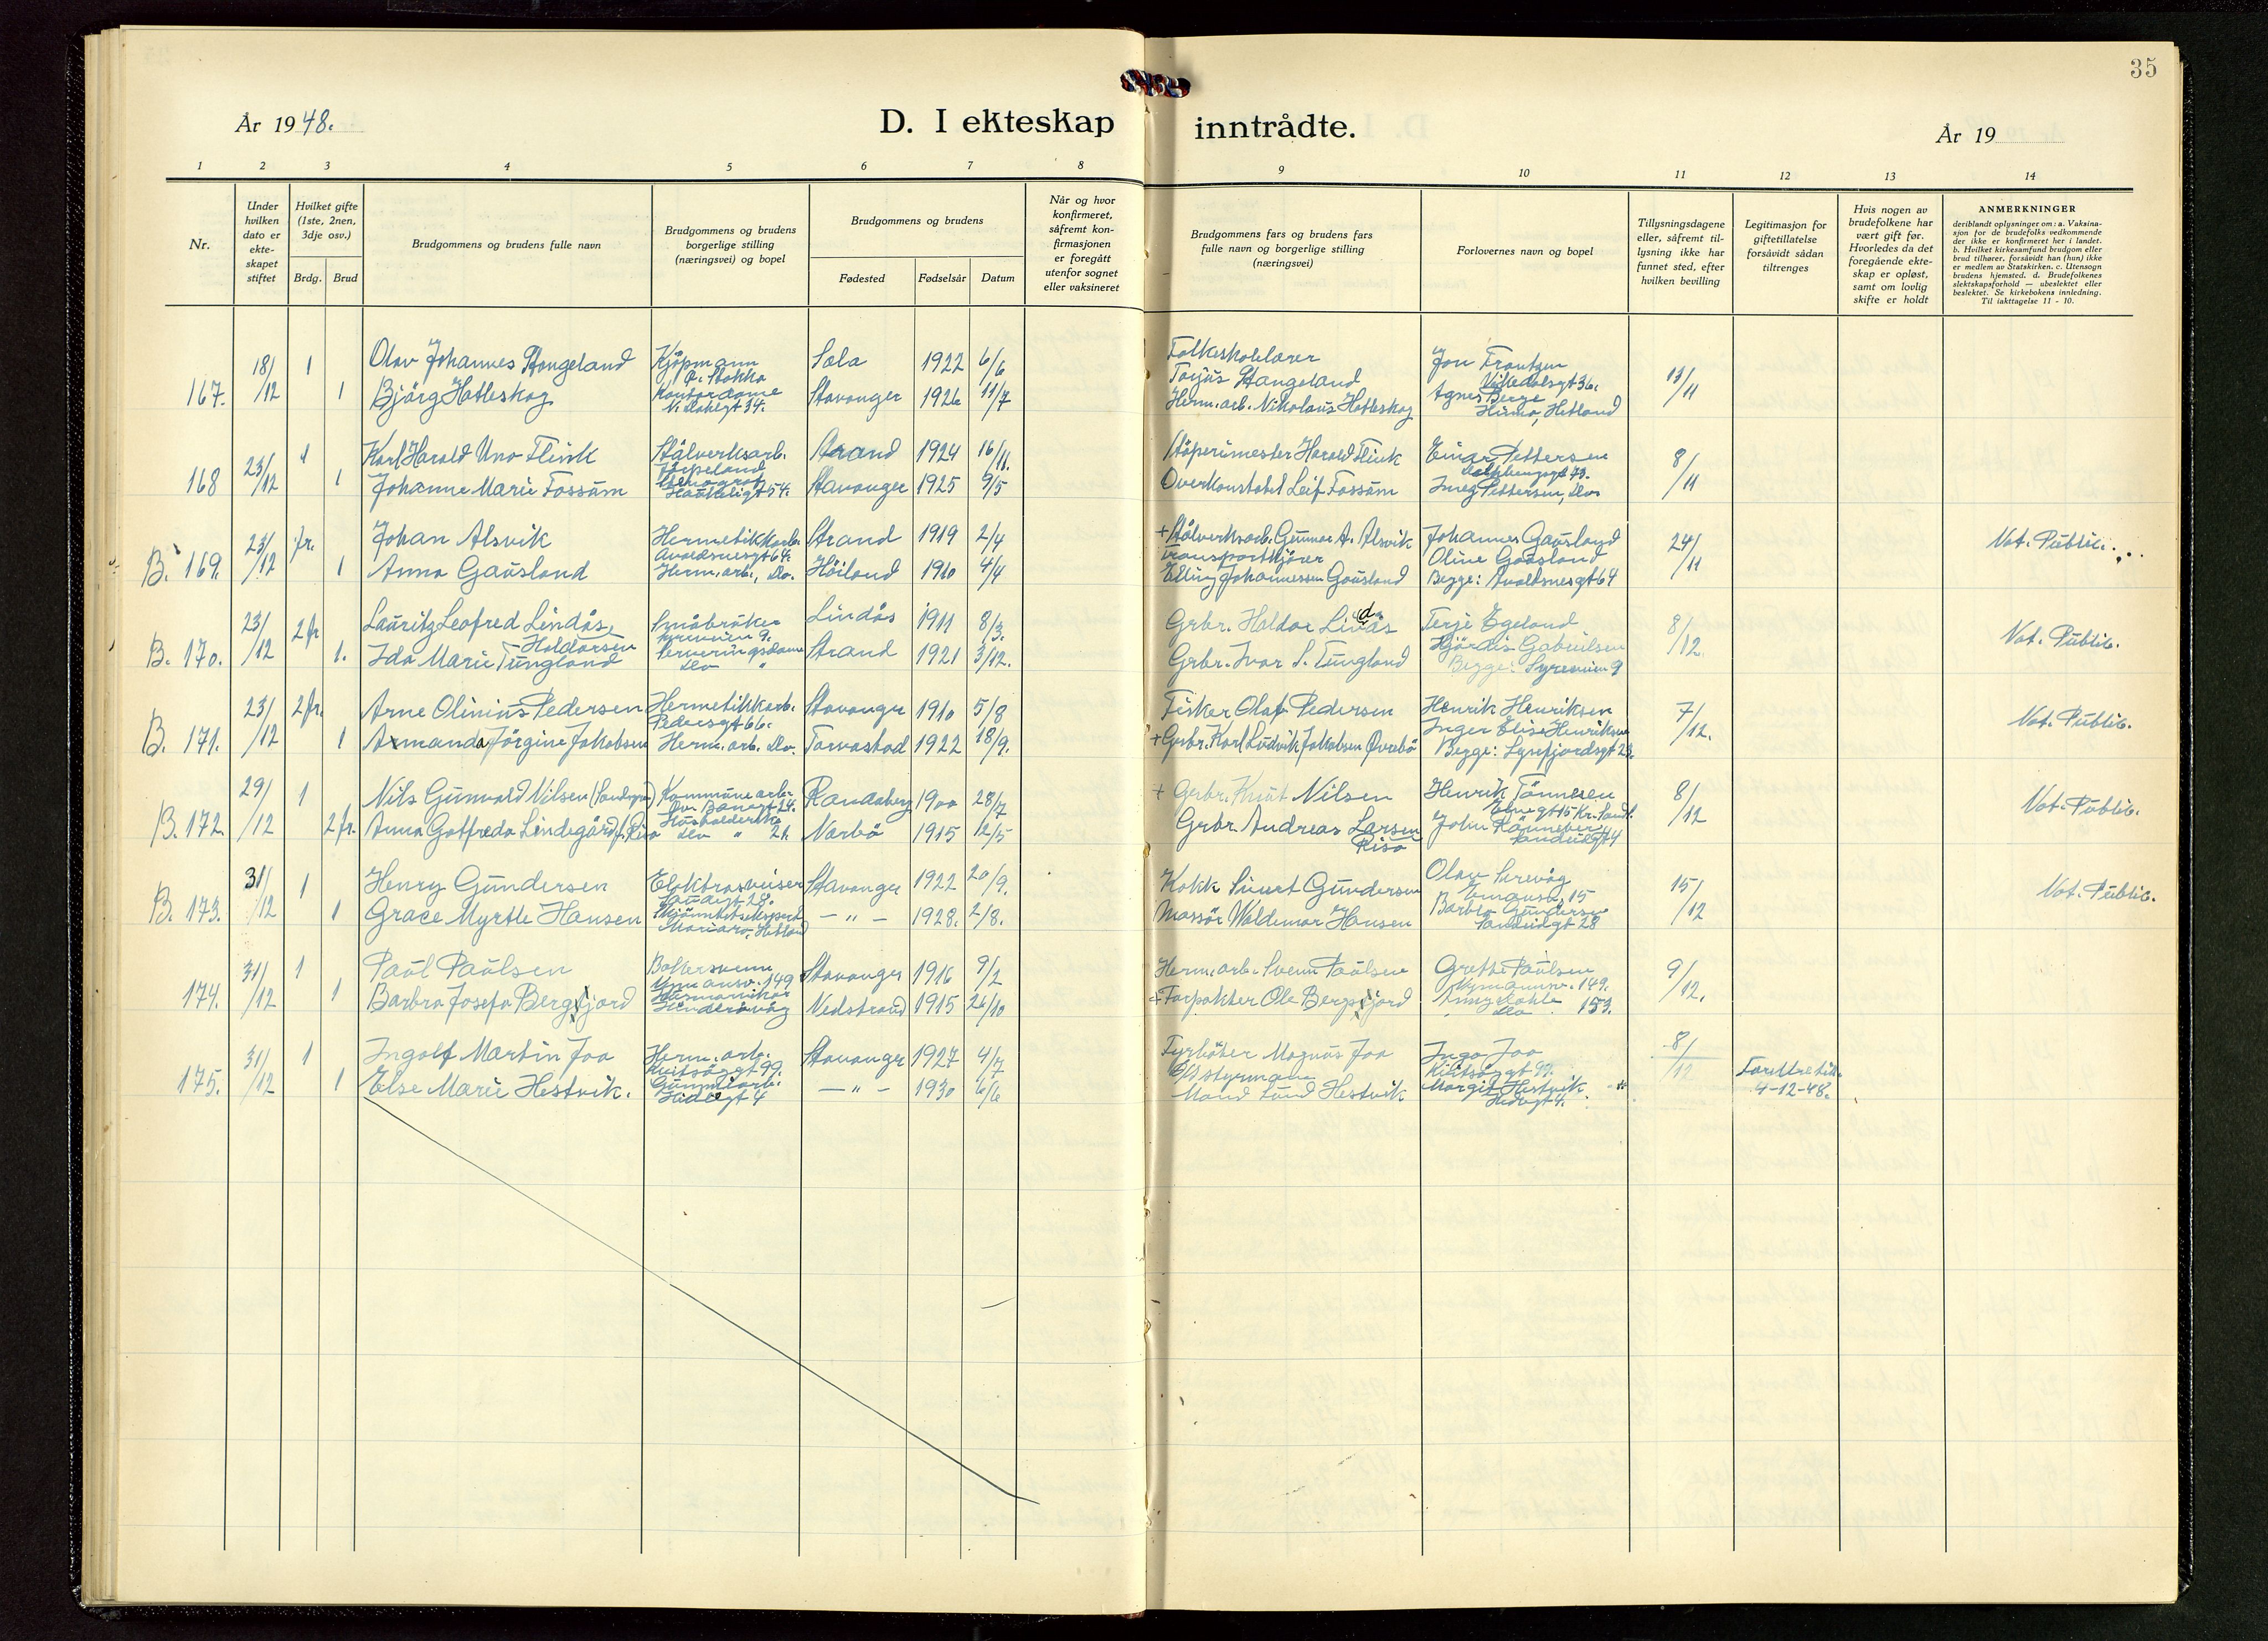 35
År 1948.
D. I ekteskap inntrådte.
År 19
1 2 3 4 5 6 7 8 9 10 11 12 13 14
Nr.
Under hvilken dato er ekte-skapet stiftet
Hvilket gifte (1ste, 2nen, 3dje osv.)
Brdg. Brud
Brudgommens og brudens fulle navn
Brudgommens og brudens borgerlige stilling (næringsvei) og bopel
Brudgommens og brudens
Fødested Fødselsår Datum
Når og hvor konfirmeret, såfremt kon-firmasjonen er foregått utenfor sognet eller vaksineret
Brudgommens fars og brudens fars fulle navn og borgerlige stilling (næringsvei)
Forlovernes navn og bopel
Tillysningsdagene eller, såfremt til-lysning ikke har funnet sted, efter hvilken bevilling
Legitimasjon for giftetillatelse forsåvidt sådan tiltrenges
Hvis nogen av brudefolkene har vært gift før. Hvorledes da det foregående ekte-skap er opløst, samt om lovlig skifte er holdt
ANMERKNINGER
deriblandt oplysninger om: a. Vaksina-sjon for de brudefolks vedkommende der ikke er konfirmeret her i landet. b. Hvilket kirkesamfund brudgom eller brud tilhører, forsåvidt han (hun) ikke er medlem av Statskirken. c. Utensogn brudens hjemsted. d. Brudefolkenes slektskapsforhold — ubeslektet eller beslektet. Se kirkebokens innledning. Til iakttagelse 11 - 10.
167. 18/12 1 Olav Johannes Stangeland Kjøpmann Sola 1922 6/6 Folkeskolelærer Torjus Stangeland Jon Frantzen 13/11
1 Bjørg Hatleskog Kontordame Stavanger 1926 11/7 Herm.arb. Nikolaus Hatleskog Agnes Berge Hinna, Hetland
168 23/12 1 Karl Harald Uno Flink Stålverksarb. Jørpeland Strand 1924 16/11. Støperimester Harald Flink Einar Pettersen 8/11
1 Johanne Marie Fossåm Stavanger 1925 9/5 Overkonstabel Leif Fossåm Pettersen, do
B. 169. 23/12 fr. Johan Alsvik Hermetikkarb. Avaldsnesgt 64. Strand 1919 2/4 + Stålverksarb. Gunnar A. Alsvik Johannes Gausland 24/11 Not. Public.
1 Anna Gausland Herm.arb., do. Høiland 1910 4/4 Transportkjører Elling Johannessen Gausland Oline Gausland Begge: Avaldsnesgt 64
B. 170. 23/12 2 fr Lauritz Leofred Lindås, Småbruker Lindås 1911 8/3. Grbr. Haldor Lindås Terje Egeland 8/12. Not. Public.
Haldorsen
1. Ida Marie Tungland Serveringsdame do " Strand 1921 3/12. Grbr. Ivar S. Tungland Hjørdis Gabrielsen Begge: Syreveien 9
B. 171. 23/12 2 fr. Arne Olinius Pedersen Hermetikkarb. Pedersgt 66. Stavanger 1910 5/8 Fisker Olaf Pedersen Henrik Henriksen 7/12. Not. Public.
1 Amanda Jørgine Jakobsen Herm.arb. do. Torvastad 1922 18/9. + Grbr. Karl Ludvik Jakobsen Øvrebø Inger Elise Henriksen Begge: Lysefjordsgt 23.
B. 172. 29/12 1 Nils Gunvald Nilsen Kommunearb. Randaberg 1900 28/7 + Grbr. Knut Nilsen Henrik Tønnesen 8/12 Not. Public.
2 fr. Anna Gotfreda Lindegård f. Risø do " 21. Nærbø 1915 12/5 Grbr. Andreas Larsen Risø John
B. 173. 31/12 1 Henry Gundersen Elektrosveiser Stavanger 1922 20/9. Kokk Sivert Gundersen Olav Sirevåg 15/12 Not. Public.
1 Grace Myrtle Hansen Mariero, Hetland — " — 1928. 2/8. Massør Waldemar Hansen Barbro Gundersen 28
174. 31/12 1 Paul Paulsen Stavanger 1916 9/2 Herm.arb. Svenn Paulsen Grethe Paulsen 149. 9/12.
1 Barbra Josefa Bergfjord Nedstrand 1915 26/10 + Forpakter Ole Bergfjord do 153.
175. 31/12 1 Ingolf Martin Joa Herm.arb. Kvitsøygt 99. Stavanger 1927 4/7 Fyrbøter Magnus Joa Inga Joa Kvitsøygt 99. 8/12
1 Else Marie Hestvik. Gummiarb. Hidlegt 4 — " — 1930 6/6 Styrmann Lund Hestvik Margit Hestvik Hidlegt 4. 4-12-48.